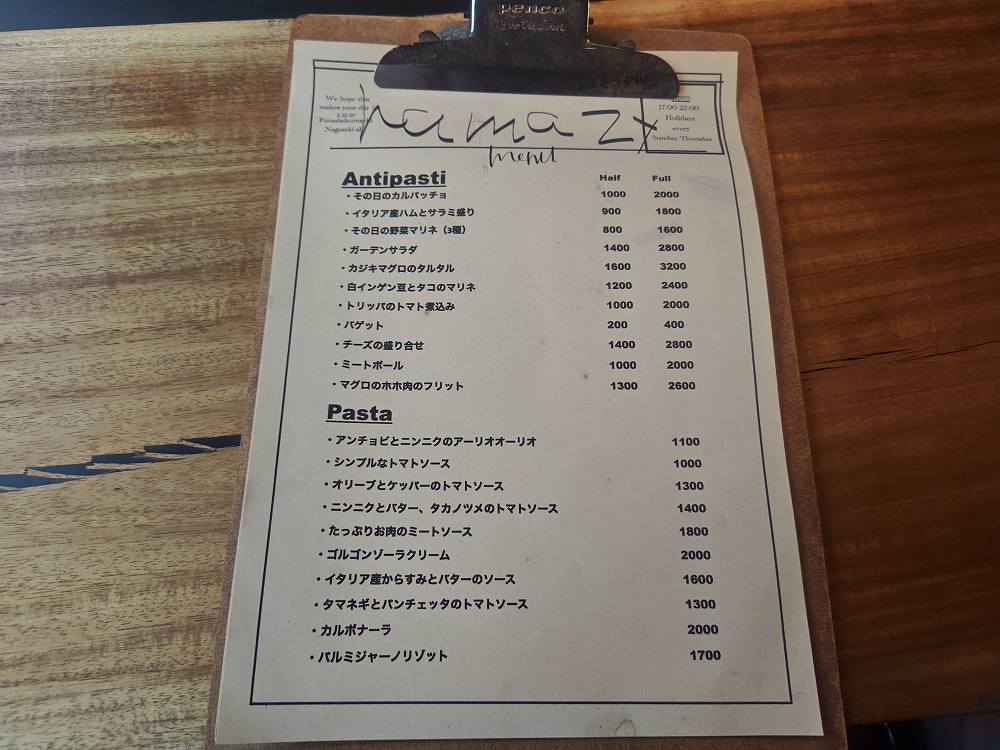 penco
We hope this
makes your day !
Nagasaki-shi
Open
17:00-22:00
Holidays
every
Sunday Thursday
menu
Antipasti Half Full
・その日のカルパッチョ 1000 2000
・イタリア産ハムとサラミ盛り 900 1800
・その日の野菜マリネ（3種） 800 1600
・ガーデンサラダ 1400 2800
・カジキマグロのタルタル 1600 3200
・白インゲン豆とタコのマリネ 1200 2400
・トリッパのトマト煮込み 1000 2000
・バゲット 200 400
・チーズの盛り合せ 1400 2800
・ミートボール 1000 2000
・マグロのホホ肉のフリット 1300 2600
Pasta
・アンチョビとニンニクのアーリオオーリオ 1100
・シンプルなトマトソース 1000
・オリーブとケッパーのトマトソース 1300
・ニンニクとバター、タカノツメのトマトソース 1400
・たっぷりお肉のミートソース 1800
・ゴルゴンゾーラクリーム 2000
・イタリア産からすみとバターのソース 1600
・タマネギとパンチェッタのトマトソース 1300
・カルボナーラ 2000
・パルミジャーノリゾット 1700